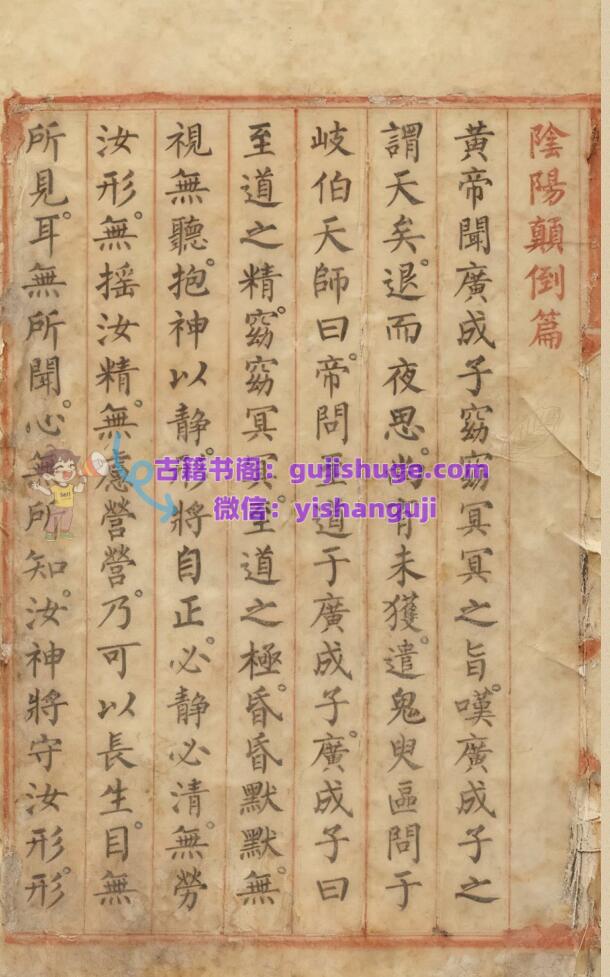 陰陽顛倒篇
黃帝聞廣成子窈窈冥冥之旨。嘆廣成子之
謂天矣。退而夜思。尚有未獲。遣鬼臾區問于
岐伯天師曰。帝問至道于廣成子。廣成子曰
至道之精。窈窈冥冥。至道之極。昏昏默默。無
視無聽。抱神以静。形將自正。必静必清。無勞
汝形。無搖汝精。無慮營營。乃可以長生。目無
所見。耳無所聞。心無所知。汝神將守汝形。形
古籍书阁：gujishuge.com
微信：yishanguji